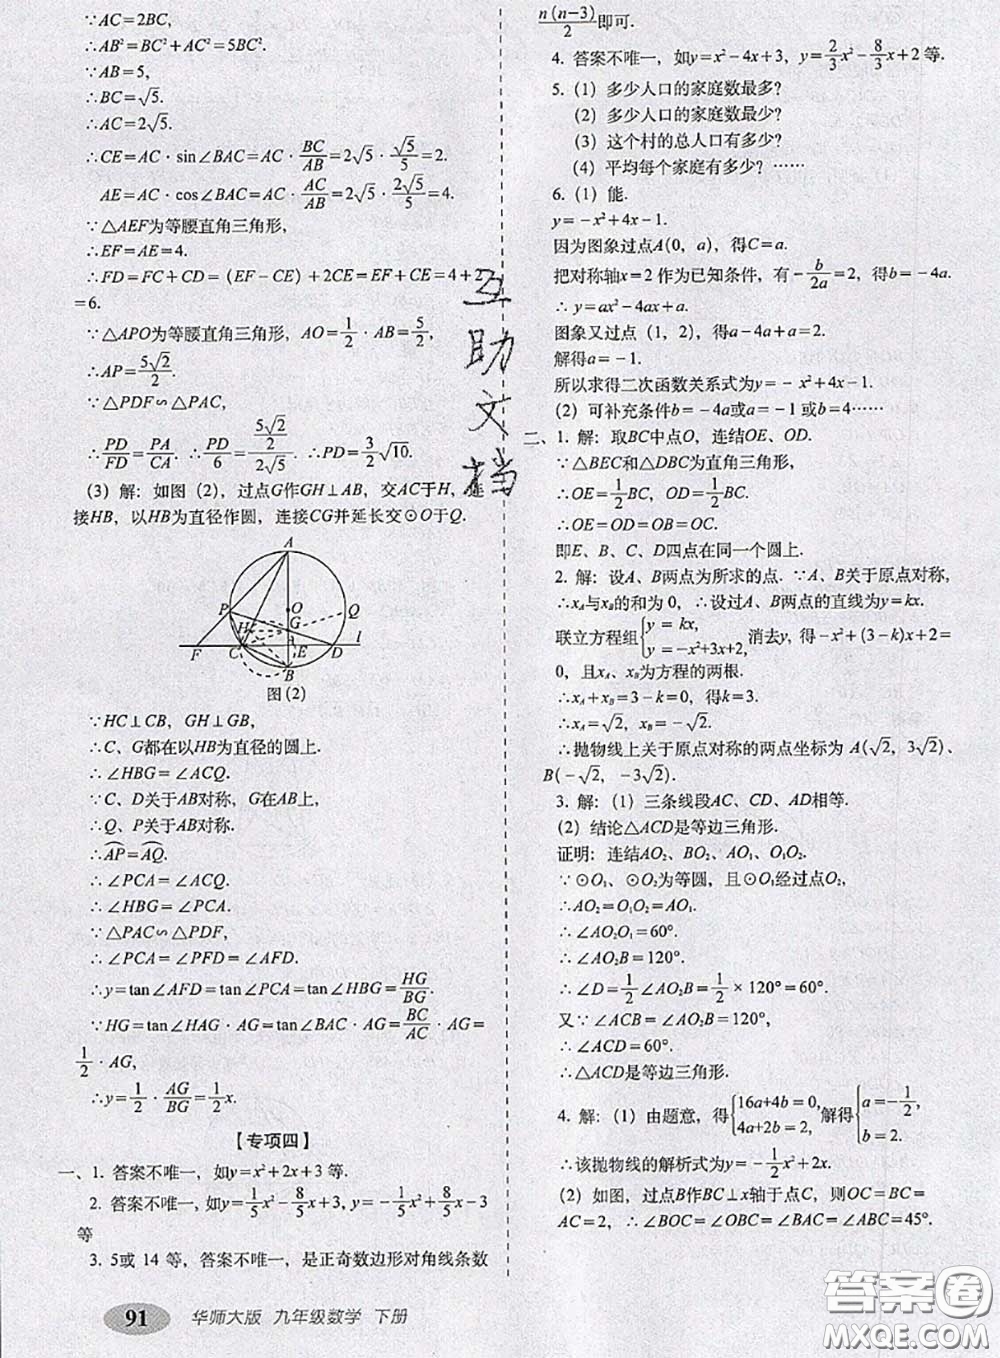 ∵AC=2BC,
∴AB²=BC²+AC²=5BC².
∵AB=5,
∴BC=√5.
∴AC=2√5.
∴CE=AC·sin∠BAC=AC·BC/AB=2√5·√5/5=2.
AE=AC·cos∠BAC=AC·AC/AB=2√5·2√5/5=4.
∵△AEF为等腰直角三角形,
∴EF=AE=4.
∴FD=FC+CD=(EF-CE)+2CE=EF+CE=4+2
=6.
∵△APO为等腰直角三角形, AO=1/2·AB=5/2,
∴AP=5√2/2.
∵△PDF∽△PAC,
∴PD/FD=PA/CA. ∴PD/6=(5√2/2)/(2√5). ∴PD=3/2√10.
(3) 解: 如图 (2), 过点G作GH⊥AB, 交AC于H, 连
接HB, 以HB为直径作圆, 连接CG并延长交⊙O于Q.
A
P O Q
H G
F C E D l
B
图 (2)
∵HC⊥CB, GH⊥GB,
∴C、G都在以HB为直径的圆上.
∴∠HBG=∠ACQ.
∵C、D关于AB对称, G在AB上,
∴Q、P关于AB对称.
∴AP=AQ.
∴∠PCA=∠ACQ.
∴∠HBG=∠PCA.
∵△PAC∽△PDF,
∴∠PCA=∠PFD=∠AFD.
∴y=tan∠AFD=tan∠PCA=tan∠HBG=HG/BG.
∵HG=tan∠HAG·AG=tan∠BAC·AG=BC/AC·AG=
1/2·AG,
∴y=1/2·AG/BG=1/2x.
【专项四】
一、1. 答案不唯一, 如y=x²+2x+3 等.
2. 答案不唯一, 如y=1/5x²-8/5x+3, y=-1/5x²+8/5x-3
等
3. 5或 14 等, 答案不唯一, 是正奇数边形对角线条数
91 华师大版 九年级数学 下册
n(n-3)/2即可.
4. 答案不唯一, 如y=x²-4x+3, y=2/3x²-8/3x+2 等.
5. (1) 多少人口的家庭数最多?
(2) 多少人口的家庭数最少?
(3) 这个村的总人口有多少?
(4) 平均每个家庭有多少? ……
6. (1) 能.
y=-x²+4x-1.
因为图象过点A(0, a), 得C=a.
把对称轴x=2 作为已知条件, 有-b/2a=2, 得b=-4a.
∴y=ax²-4ax+a.
图象又过点 (1, 2), 得a-4a+a=2.
解得a=-1.
所以求得二次函数关系式为y=-x²+4x-1.
(2) 可补充条件b=-4a或a=-1 或b=4……
二、1. 解: 取BC中点O, 连结OE、OD.
∵△BEC和△DBC为直角三角形,
∴OE=1/2BC, OD=1/2BC.
∴OE=OD=OB=OC.
即E、B、C、D四点在同一个圆上.
2. 解: 设A、B两点为所求的点. ∵A、B关于原点对称,
∴xA与xB的和为 0, ∴设过A、B两点的直线为y=kx.
联立方程组{y=kx, y=-x²+3x+2, 消去y, 得-x²+(3-k)x+2=
0, 且xA、xB为方程的两根.
∴xA+xB=3-k=0, 得k=3.
∴xA=√2, xB=-√2.
∴抛物线上关于原点对称的两点坐标为 A(√2, 3√2)、
B(-√2, -3√2).
3. 解: (1) 三条线段AC、CD、AD相等.
(2) 结论△ACD是等边三角形.
证明: 连结AO₂、BO₂、AO₁、O₁O₂.
∵⊙O₁、⊙O₂为等圆, 且⊙O₁经过点O₂,
∴AO₂=O₁O₂=AO₁.
∴∠AO₂O₁=60°.
∴∠AO₂B=120°.
∴∠D=1/2∠AO₂B=1/2×120°=60°.
又∵∠ACB=∠AO₂B=120°,
∴∠ACD=60°.
∴△ACD是等边三角形.
4. 解: (1) 由题意, 得{16a+4b=0, 4a+2b=2, 解得{a=-1/2, b=2.
∴该抛物线的解析式为y=-1/2x²+2x.
(2) 如图, 过点B作BC⊥x轴于点C, 则OC=BC=
AC=2, ∴∠BOC=∠OBC=∠BAC=45°.
互助文档
答案圈
MXQE.COM